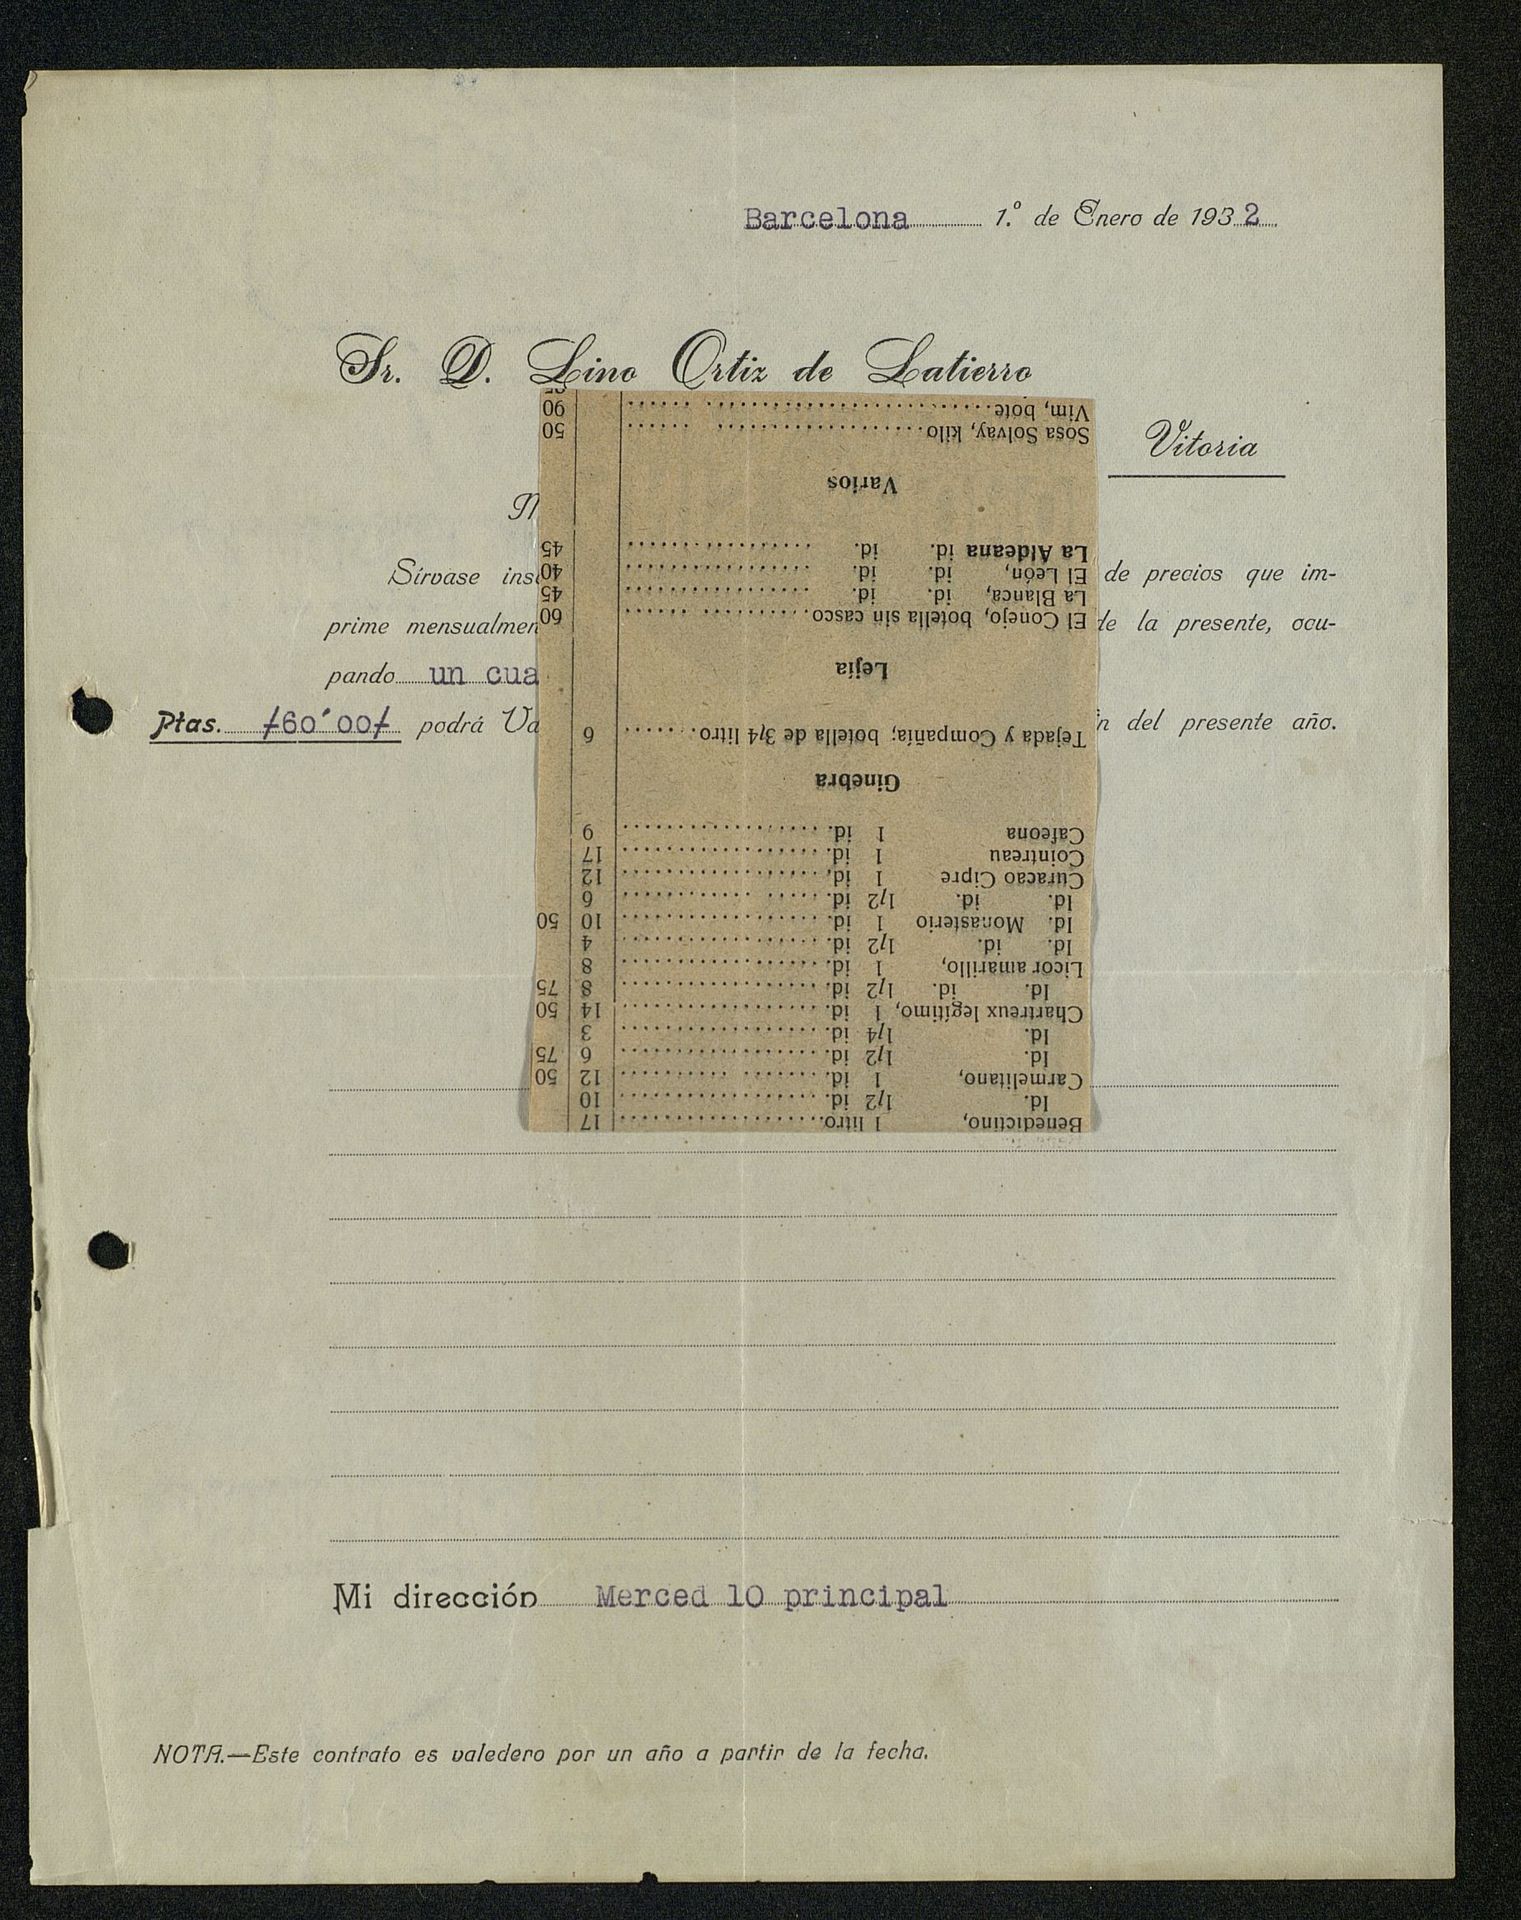 Barcelona 1.º de Enero de 1932
Sr. D. Lino Ortiz de Latierro
Vitoria
Sírvase de precios que im-
prime mensualmen de la presente, ocu-
pando un
Ptas. /60'00/ podrá del presente año.
Benedictino, 1 litro 17
Id. 1/2 id. 10
Carmelitano, 1 id. 12 50
Id. 1/2 id. 6 75
Id. 1/4 id. 3
Chartreux legítimo, 1 id. 14 50
Id. id. 1/2 id. 8 75
Licor amarillo, 1 id. 8
Id. id. 1/2 id. 4
Id. Monasterio 1 id. 10 50
Id. id. 1/2 id. 6
Curacao Cipre 1 id. 12
Cointreau 1 id. 17
Cafeona 1 id. 9
Ginebra
Tejada y Compañía; botella de 3/4 litro 6
Lejía
El Conejo, botella sin casco 60
La Blanca, id. id. 45
El León, id. id. 40
La Aldeana id. id. 45
Varios
Sosa Solvay, kilo 50
Vim, bote 90
Mi dirección Merced 10 principal
NOTA.—Este contrato es valedero por un año a partir de la fecha.